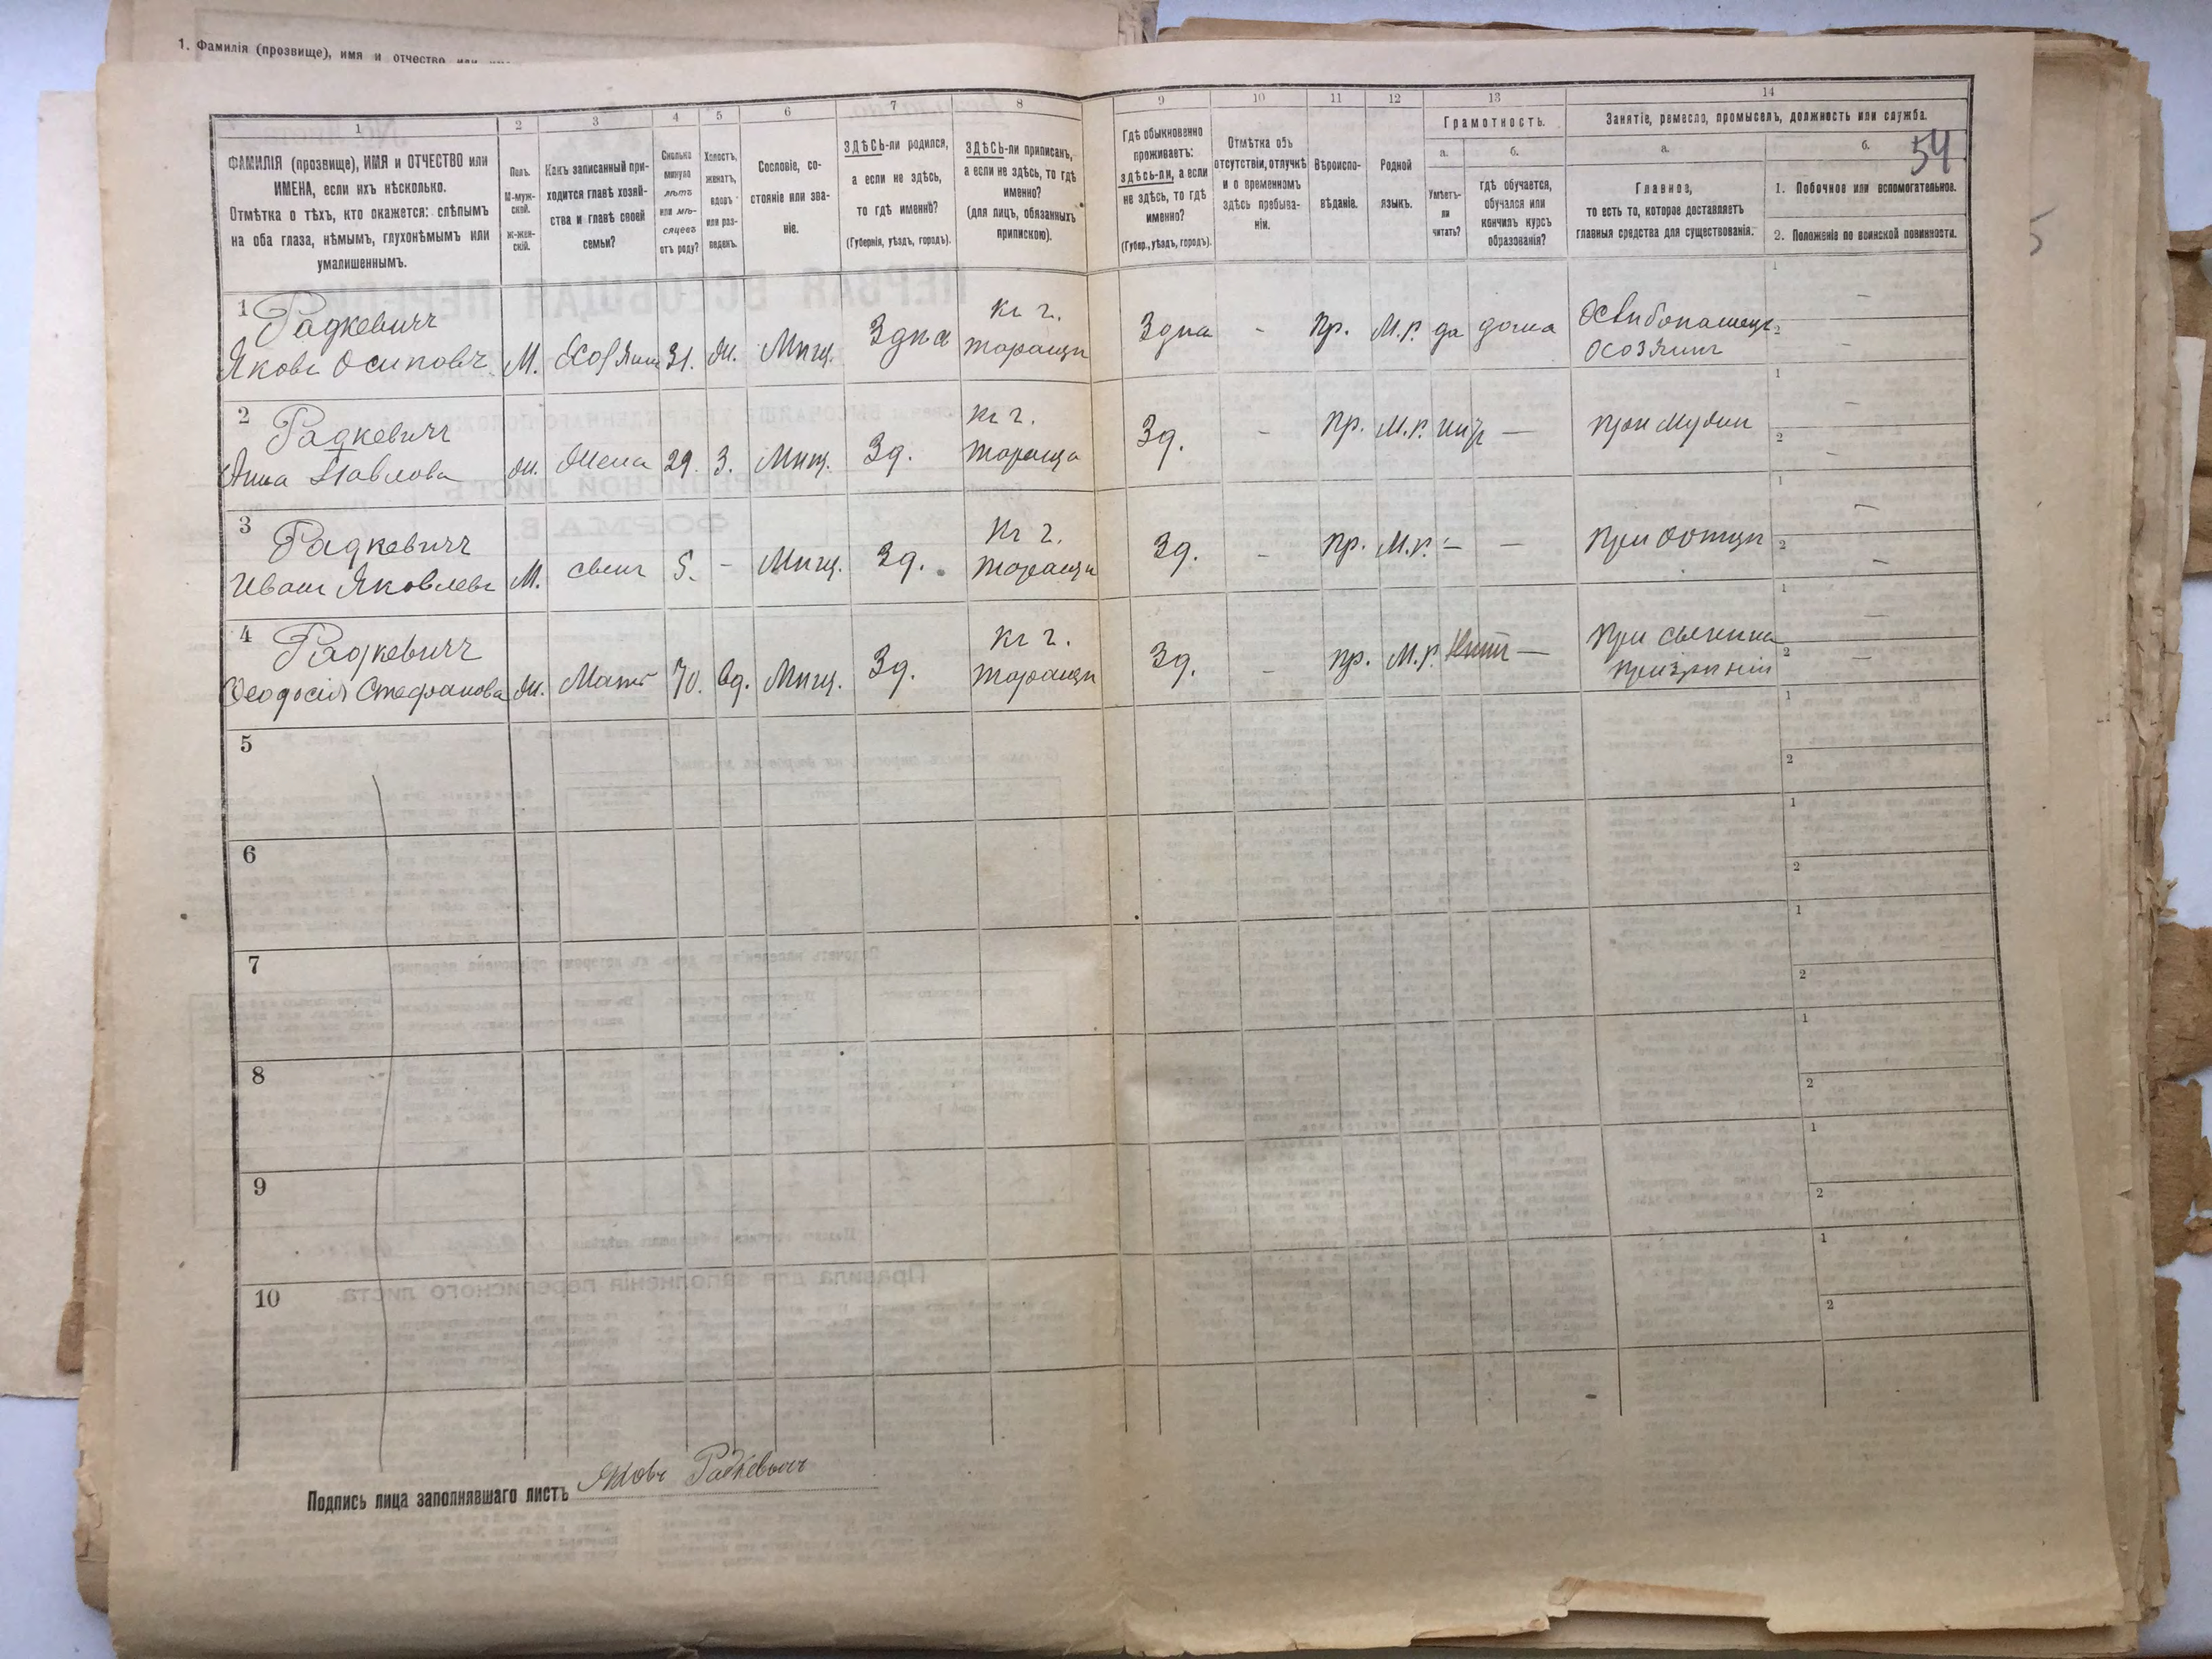 1. Фамилія (прозвище), имя и отчество или
1
2
3
4
5
6
7
8
9
10
11
12
13
14
ФАМИЛІЯ (прозвище), ИМЯ и ОТЧЕСТВО или
ИМЕНА, если ихъ нѣсколько.
Отмѣтка о тѣхъ, кто окажется: слѣпымъ
на оба глаза, нѣмымъ, глухонѣмымъ или
умалишеннымъ.
Полъ.
М-муж-
ской.
Ж-жен-
скій.
Какъ записанный при-
ходится главѣ хозяй-
ства и главѣ своей
семьи?
Сколько
минуло
лѣтъ
или мѣ-
сяцевъ
отъ роду?
Холостъ,
женатъ,
вдовъ
или раз-
веденъ.
Сословіе, со-
стояніе или зва-
ніе.
ЗДѢСЬ-ли родился,
а если не здѣсь,
то гдѣ именно?
(Губернія, уѣздъ, городъ).
ЗДѢСЬ-ли приписанъ,
а если не здѣсь, то гдѣ
именно?
(для лицъ, обязанныхъ
припискою).
Гдѣ обыкновенно
проживаетъ:
здѣсь-ли, а если
не здѣсь, то гдѣ
именно?
(Губер., уѣздъ, городъ).
Отмѣтка объ
отсутствіи, отлучкѣ
и о временномъ
здѣсь пребыва-
ніи.
Вѣроиспо-
вѣданіе.
Родной
языкъ.
Грамотность.
а.
б.
Умѣетъ-
ли
читать?
гдѣ обучается,
обучался или
кончилъ курсъ
образованія?
Занятіе, ремесло, промыселъ, должность или служба.
а.
б.
54
Главное,
то есть то, которое доставляетъ
главныя средства для существованія.
1. Побочное или вспомогательное.
2. Положеніе по воинской повинности.
1
Радкевичъ
Яковъ Осиповъ
М.
31.
Ж.
Мѣщ.
Здѣсь
Къ г.
Таращѣ
Здѣсь
-
Пр.
М.р.
да
дома
1 —
2 —
2
Радкевичъ
Анна Павлова
Ж.
Жена
29.
З.
Мѣщ.
Зд.
Къ г.
Тараща
Зд.
-
Пр.
М.р.
нѣтъ
—
при мужѣ
1 —
2 —
3
Радкевичъ
Иванъ Яковлевъ
М.
сынъ
5.
-
Мѣщ.
Зд.
Къ г.
Таращѣ
Зд.
-
Пр.
М.р.
—
—
при отцѣ
1 —
2 —
4
Радкевичъ
Ѳеодосія Стефанова
Ж.
Мать
70.
Вд.
Мѣщ.
Зд.
Къ г.
Таращѣ
Зд.
-
пр.
М.р.
Нѣтъ
—
При сына
призрѣніи
1 —
2 —
5
1
2
6
1
2
7
1
2
8
1
2
9
1
2
10
1
2
Подпись лица заполнявшаго листъ Яковъ Радкевичъ